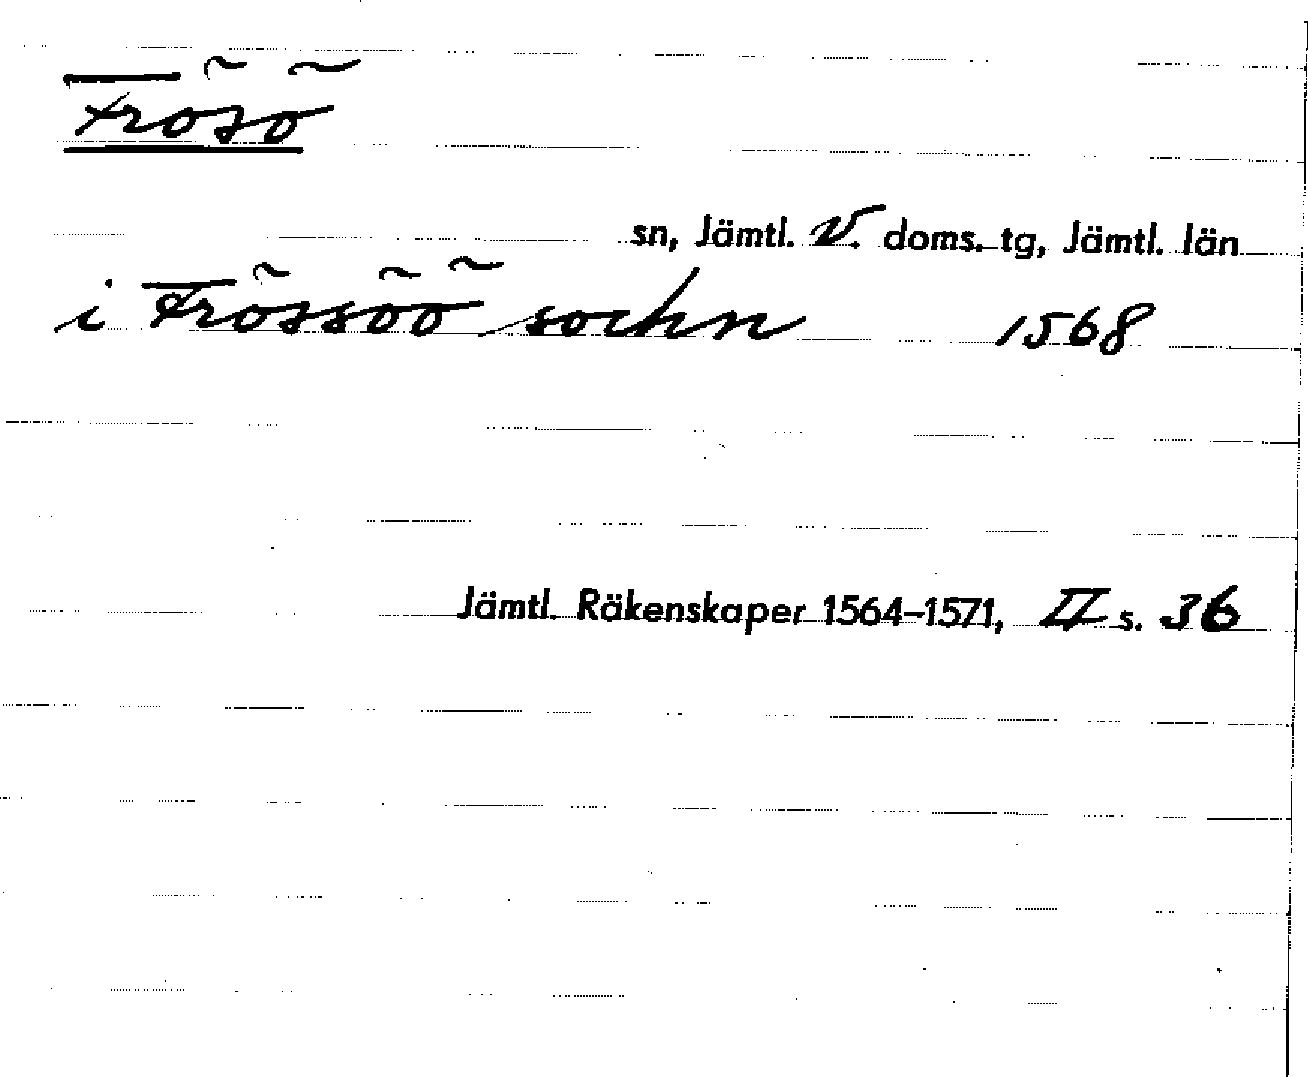 Frösö
sn, Jämtl. V. doms. tg, Jämtl. län
i Frössöö sochn 1568
Jämtl. Räkenskaper 1564–1571, II s. 36